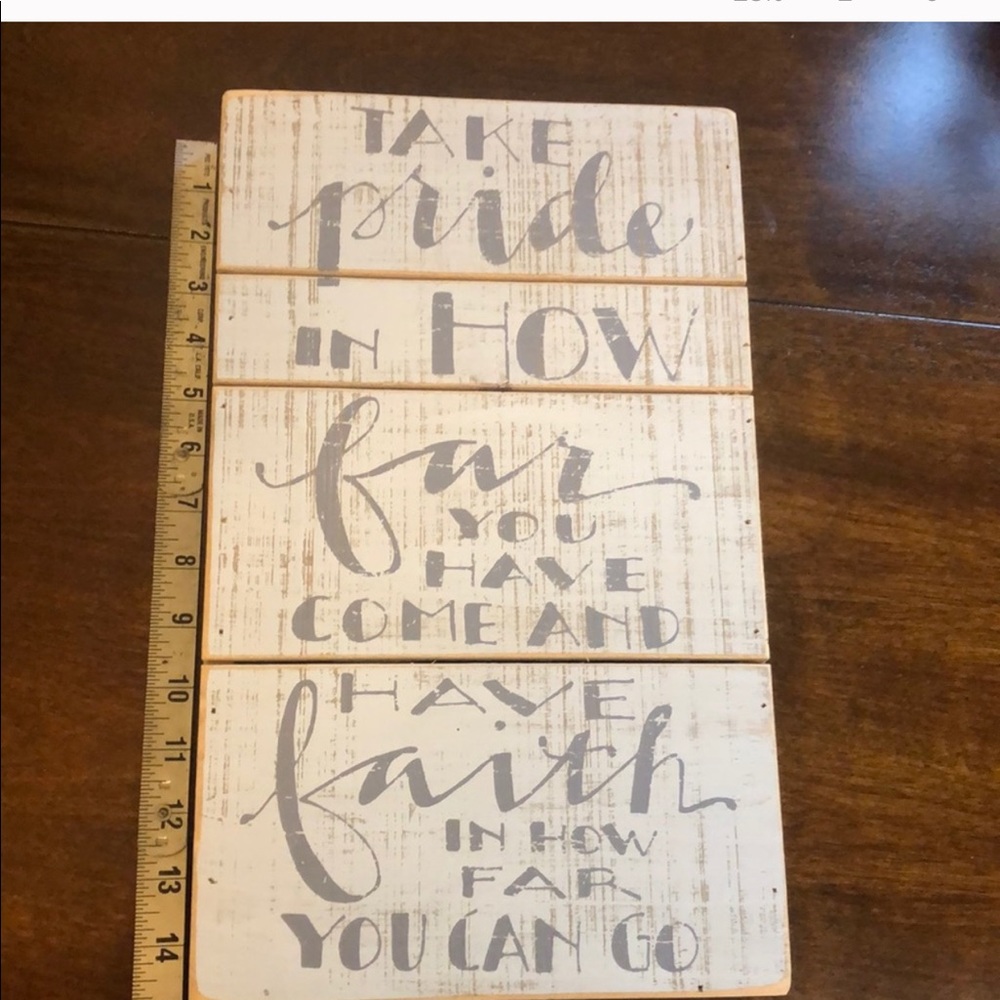 TAKE
pride
IN HOW
far
YOU
HAVE
COME AND
HAVE
faith
IN HOW
FAR
YOU CAN GO
1
2
3
4
5
6
7
8
9
10
11
12
13
14